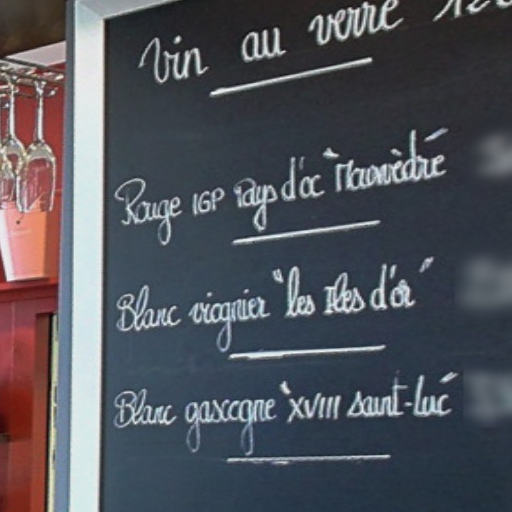 Vin au verre
Rouge IGP Pays d'oc "Mourvèdre"
Blanc viognier "les Iles d'or"
Blanc gascogne "XVIII saint-luc"